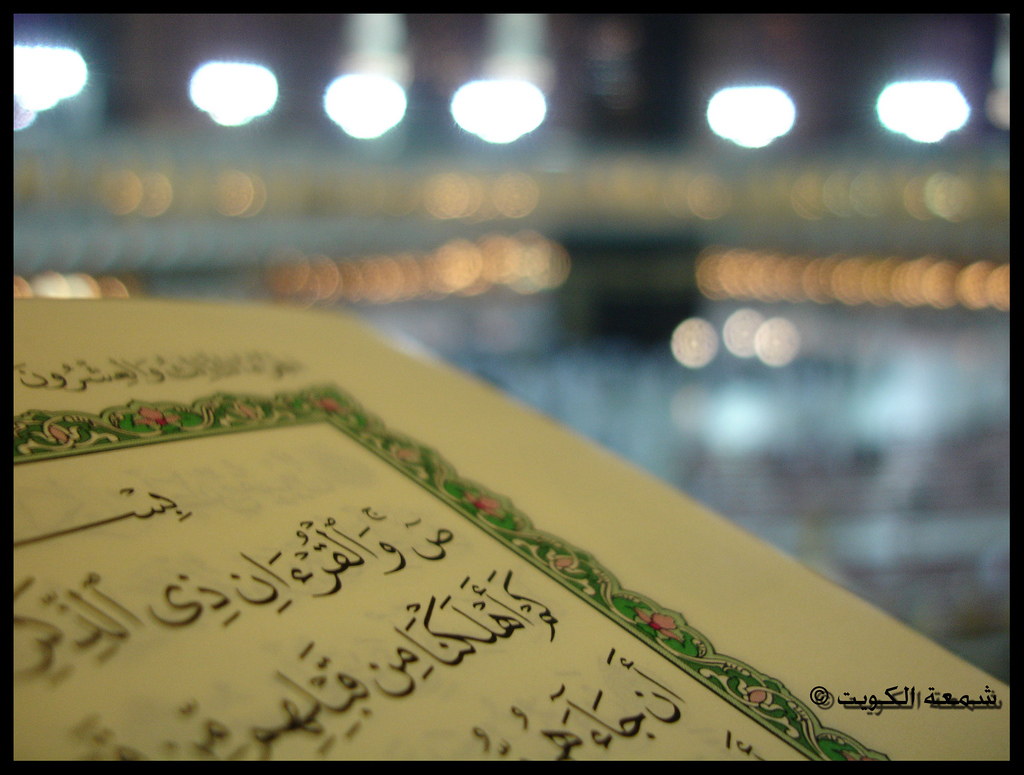 والعشرون
بس
صٓ وَٱلْقُرْءَانِ ذِى ٱلذِّكْرِ
كَمْ أَهْلَكْنَا مِن قَبْلِهِم مِّن
أَن جَآءَهُم
© شمعة الكويت